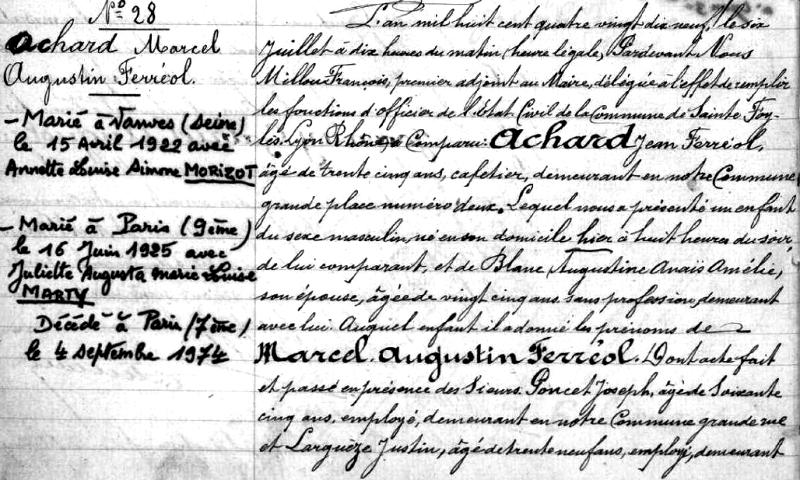 No 28
Achard Marcel
Augustin Ferréol.
- Marié à Vanves (Seine)
le 15 Avril 1922 avec
Annette Louise Simone MORIZOT
- Marié à Paris (9ème)
le 16 Juin 1925 avec
Juliette Augusta Marie Louise
MARTY
Décédé à Paris (7ème)
le 4 septembre 1974
L'an mil huit cent quatre vingt dix neuf, le six
Juillet à dix heures du matin (heure légale, Pardevant Nous
Millou François, premier adjoint au Maire, délégué à l'effet de remplir
les fonctions d'officier de l'Etat Civil de la Commune de Sainte Foy-
lès-Lyon Rhône, a Comparu: Achard Jean Ferréol,
âgé de trente cinq ans, cafetier, demeurant en notre Commune
grande place numéro deux. Lequel nous a présenté un enfant
du sexe masculin, né en son domicile hier à huit heures du soir,
de lui comparant, et de Blanc, Augustine Anaïs Amélie,
son épouse, âgée de vingt cinq ans, sans profession, demeurant
avec lui. Auquel enfant il a donné les prénoms de
Marcel. Augustin Ferréol. Dont acte fait
et passé en présence des Sieurs. Poncet Joseph, âgé de Soixante
cinq ans, employé, demeurant en notre Commune grande rue
et Larguèze Justin, âgé de trente neuf ans, employé, demeurant